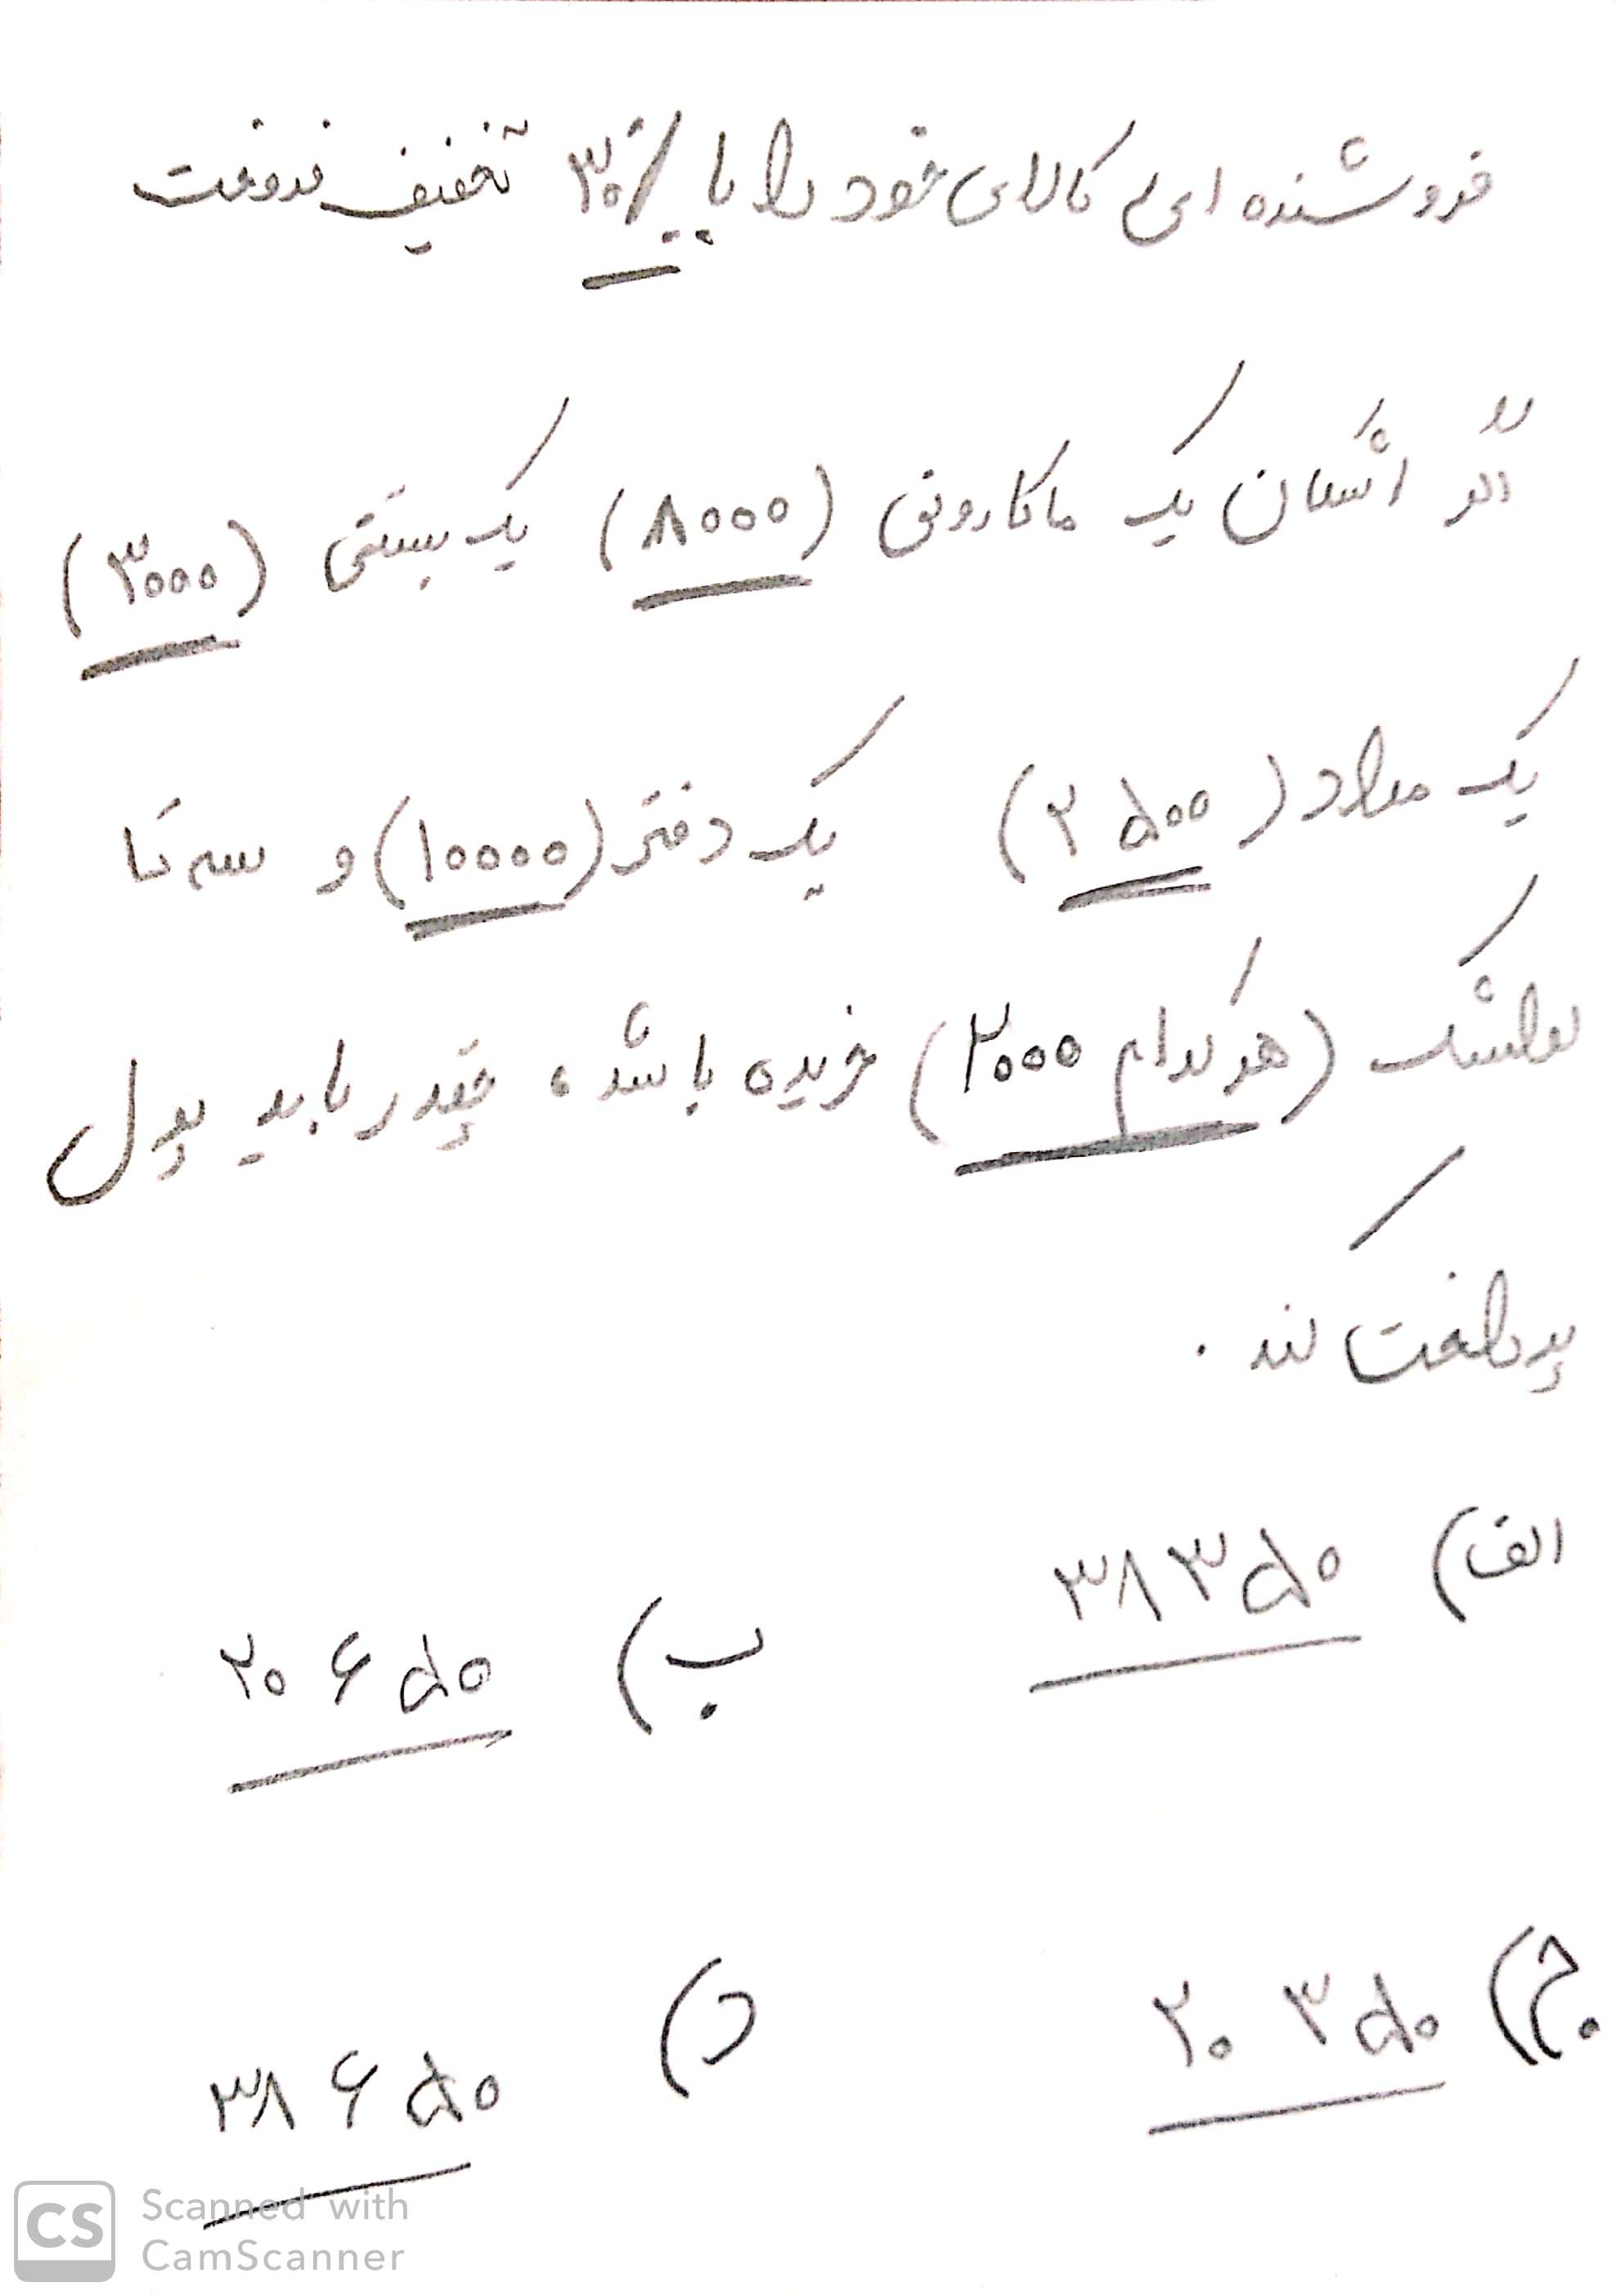 فروشنده ای کالای خود را با ۳۰٪ تخفیف فروخت
اگر اشکان یک ماکارونی (۸۰۰۰) یک بستنی (۳۰۰۰)
یک مداد (۲۵۰۰) یک دفتر (۱۰۰۰۰) و سه تا
لواشک (هر کدام ۲۰۰۰) خریده باشد، چقدر باید پول
پرداخت کند.
الف) ۳۸۳۵۰
ب) ۲۰۶۵۰
ج) ۲۰۳۵۰
د) ۳۸۶۵۰
CS Scanned with
CamScanner